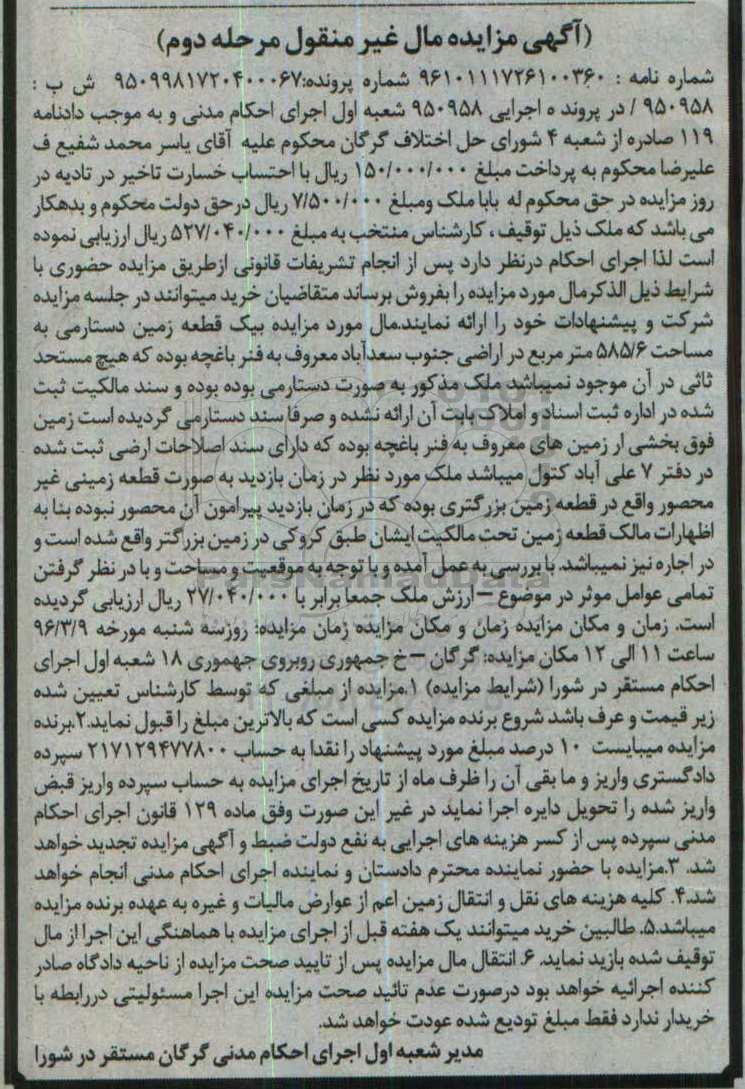 (آگهی مزایده مال غیر منقول مرحله دوم)
شماره نامه : ۹۶۱۰۱۱۱۷۲۶۱۰۰۳۶۰ شماره پرونده:۹۵۰۹۹۸۱۷۲۰۴۰۰۰۶۷ ش ب :
۹۵۰۹۵۸ / در پروند ه اجرایی ۹۵۰۹۵۸ شعبه اول اجرای احکام مدنی و به موجب دادنامه
۱۱۹ صادره از شعبه ۴ شورای حل اختلاف گرگان محکوم علیه آقای یاسر محمد شفیع ف
علیرضا محکوم به پرداخت مبلغ ۱۵۰/۰۰۰/۰۰۰ ریال با احتساب خسارت تاخیر در تادیه در
روز مزایده در حق محکوم له بابا ملک ومبلغ ۷/۵۰۰/۰۰۰ ریال درحق دولت محکوم و بدهکار
می باشد که ملک ذیل توقیف ، کارشناس منتخب به مبلغ ۵۲۷/۰۴۰/۰۰۰ ریال ارزیابی نموده
است لذا اجرای احکام درنظر دارد پس از انجام تشریفات قانونی ازطریق مزایده حضوری با
شرایط ذیل الذکرمال مورد مزایده را بفروش برساند متقاضیان خرید میتوانند در جلسه مزایده
شرکت و پیشنهادات خود را ارائه نمایند.مال مورد مزایده بیک قطعه زمین دستارمی به
مساحت ۵۸۵/۶ متر مربع در اراضی جنوب سعدآباد معروف به فنر باغچه بوده که هیچ مستحد
ثاثی در آن موجود نمیباشد ملک مذکور به صورت دستارمی بوده بوده و سند مالکیت ثبت
شده در اداره ثبت اسناد و املاک بابت آن ارائه نشده و صرفا سند دستارمی گردیده است زمین
فوق بخشی از زمین های معروف به فنر باغچه بوده که دارای سند اصلاحات ارضی ثبت شده
در دفتر ۷ علی آباد کتول میباشد ملک مورد نظر در زمان بازدید به صورت قطعه زمینی غیر
محصور واقع در قطعه زمین بزرگتری بوده که در زمان بازدید پیرامون آن محصور نبوده بنا به
اظهارات مالک قطعه زمین تحت مالکیت ایشان طبق کروکی در زمین بزرگتر واقع شده است و
در اجاره نیز نمیباشد. با بررسی به عمل آمده و با توجه به موقعیت و مساحت و با در نظر گرفتن
تمامی عوامل موثر در موضوع –ارزش ملک جمعا برابر با ۲۷/۰۴۰/۰۰۰ ریال ارزیابی گردیده
است. زمان و مکان مزایده زمان و مکان مزایده زمان مزایده: روزسه شنبه مورخه ۹۶/۳/۹
ساعت ۱۱ الی ۱۲ مکان مزایده: گرگان –خ جمهوری روبروی جهموری ۱۸ شعبه اول اجرای
احکام مستقر در شورا (شرایط مزایده) ۱.مزایده از مبلغی که توسط کارشناس تعیین شده
زیر قیمت و عرف باشد شروع برنده مزایده کسی است که بالاترین مبلغ را قبول نماید.۲.برنده
مزایده میبایست ۱۰ درصد مبلغ مورد پیشنهاد را نقدا به حساب ۲۱۷۱۲۹۴۷۷۸۰۰ سپرده
دادگستری واریز و ما بقی آن را ظرف ماه از تاریخ اجرای مزایده به حساب سپرده واریز قبض
واریز شده را تحویل دایره اجرا نماید در غیر این صورت وفق ماده ۱۲۹ قانون اجرای احکام
مدنی سپرده پس از کسر هزینه های اجرایی به نفع دولت ضبط و آگهی مزایده تجدید خواهد
شد. ۳.مزایده با حضور نماینده محترم دادستان و نماینده اجرای احکام مدنی انجام خواهد
شد.۴. کلیه هزینه های نقل و انتقال زمین اعم از عوارض مالیات و غیره به عهده برنده مزایده
میباشد.۵. طالبین خرید میتوانند یک هفته قبل از اجرای مزایده با هماهنگی این اجرا از مال
توقیف شده بازید نماید. ۶. انتقال مال مزایده پس از تایید صحت مزایده از ناحیه دادگاه صادر
کننده اجرائیه خواهد بود درصورت عدم تائید صحت مزایده این اجرا مسئولیتی دررابطه با
خریدار ندارد فقط مبلغ تودیع شده عودت خواهد شد.
مدیر شعبه اول اجرای احکام مدنی گرگان مستقر در شورا